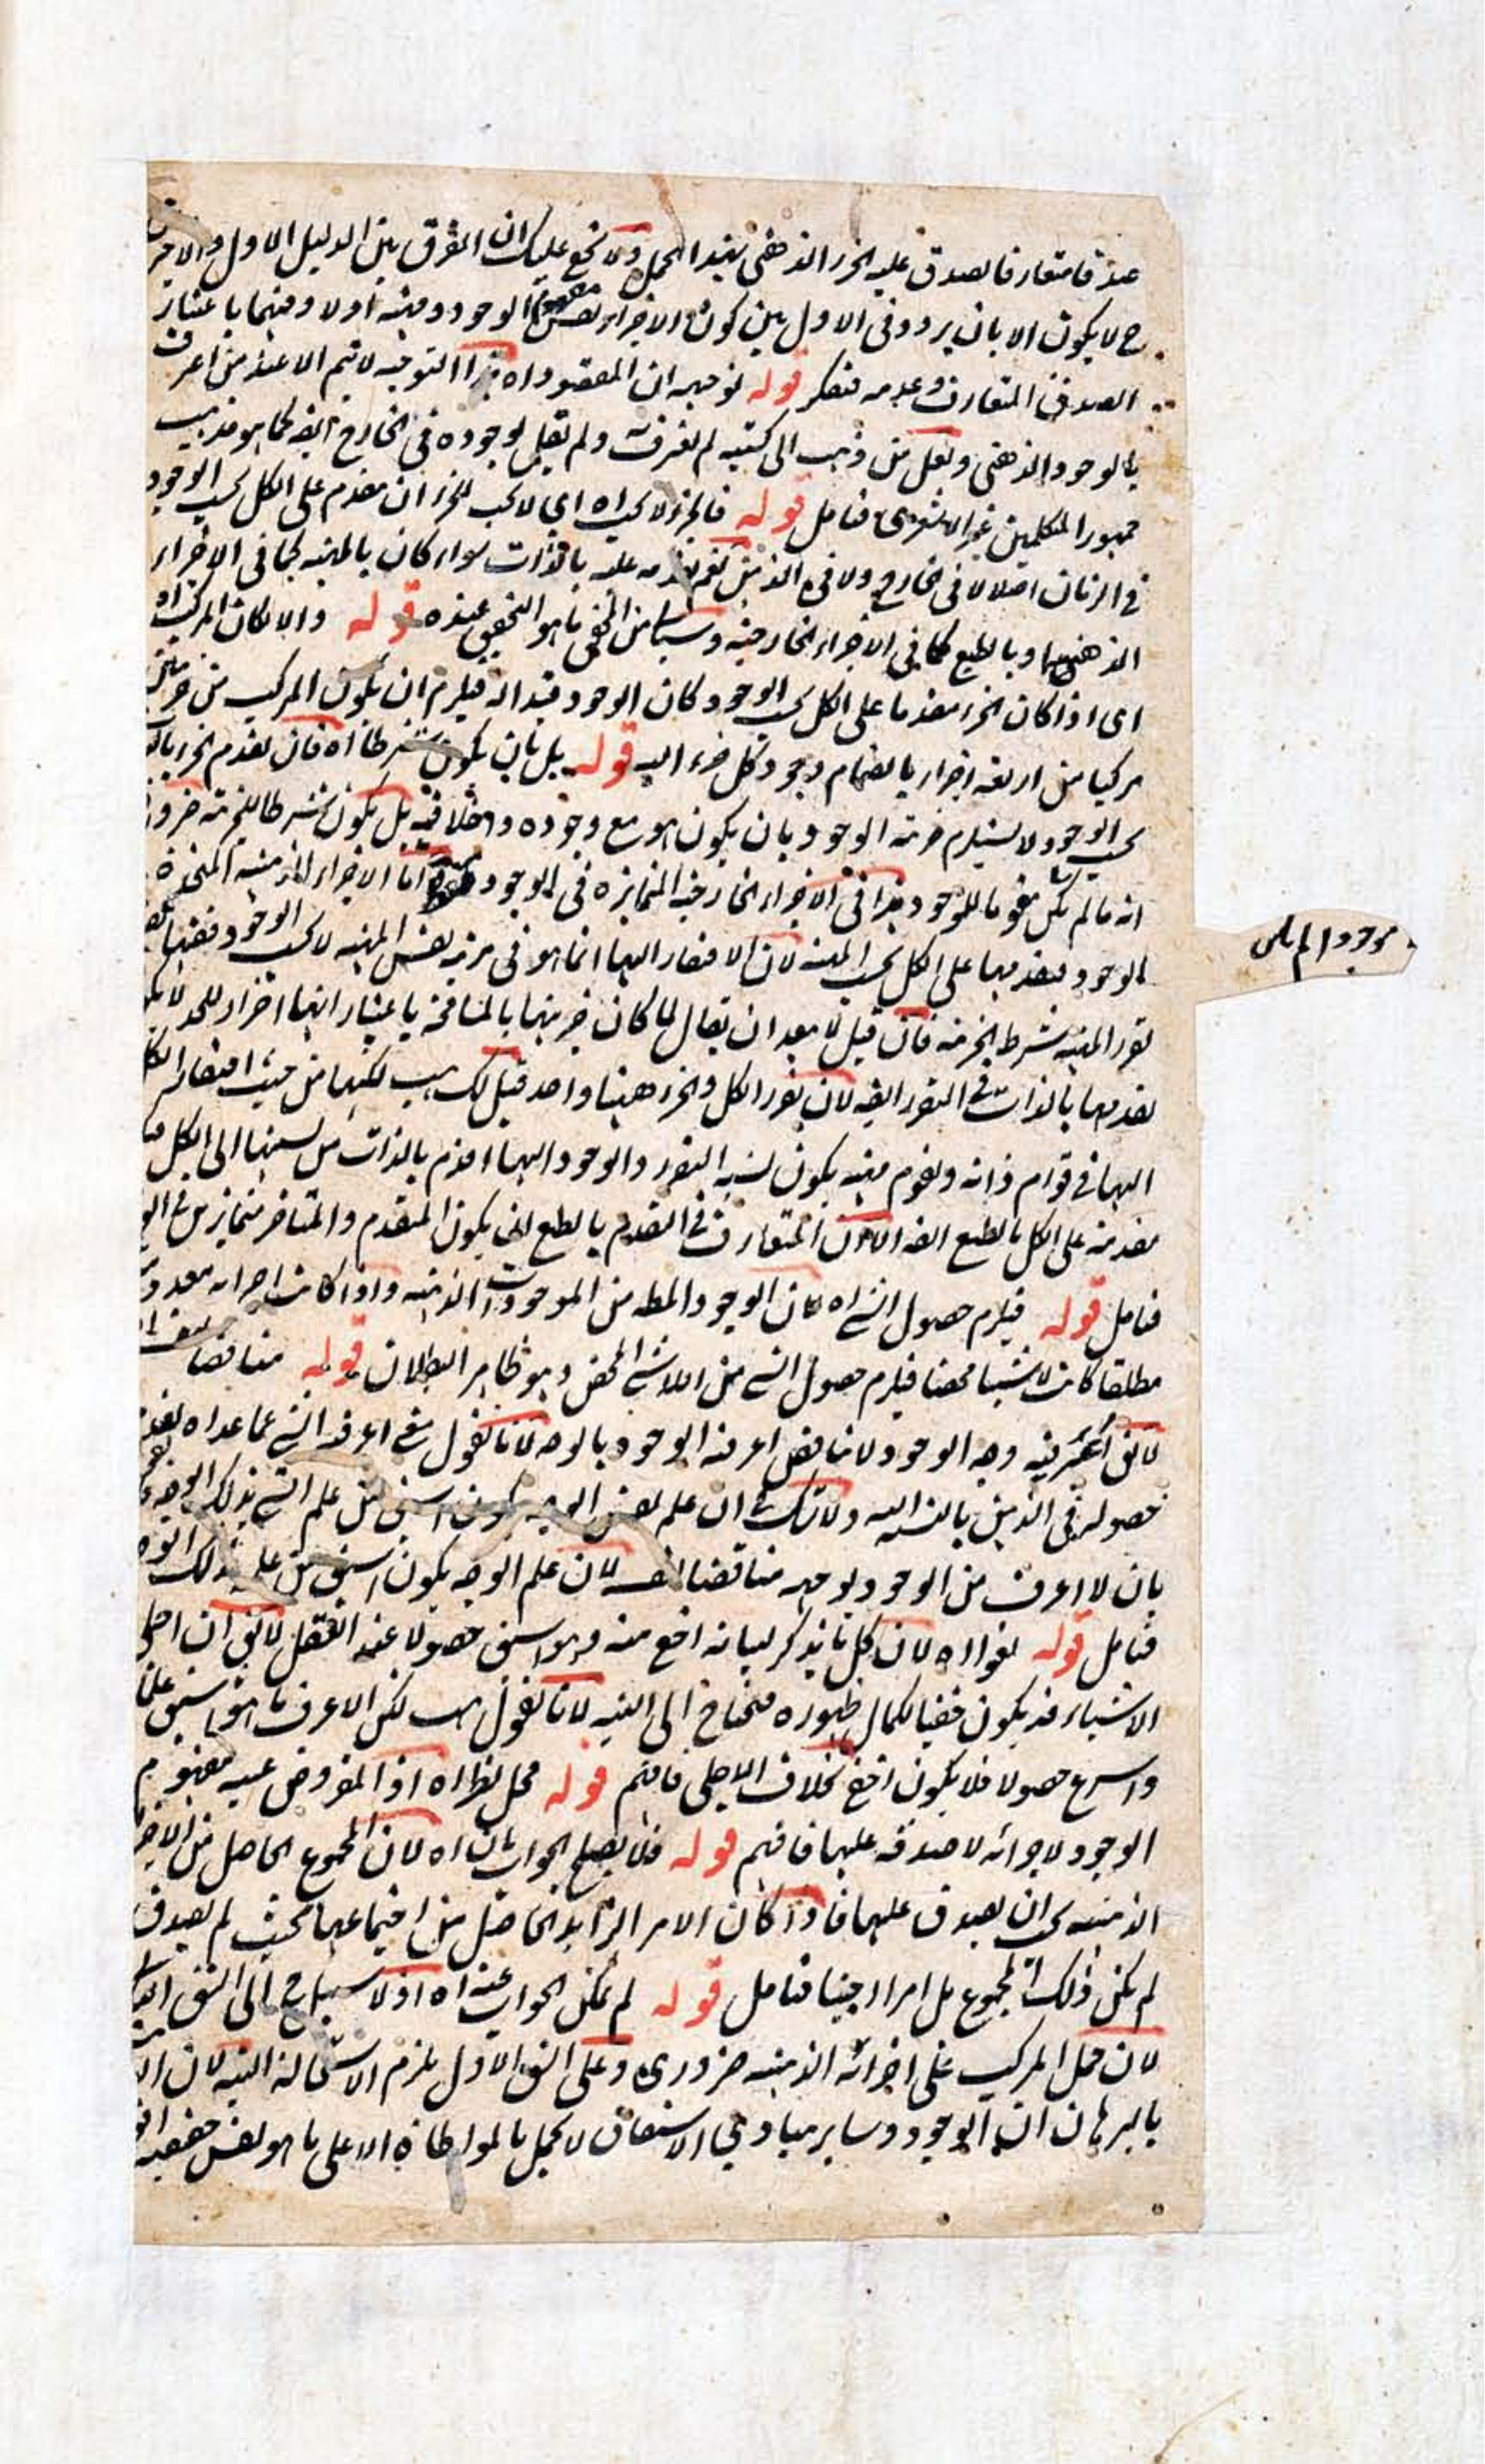 صدقا متعارفا لصدق عليه الجزء الذهني بهذا الحمل ولا يخفى عليك ان الفرق بين الدليل الاول والاخر
ح لا يكون الا بان يردد في الاول بين كون الاجزاء نفس مفهوم الوجود ومنه اولا وفيهما باعتبار
الصدق المتعارف وعدمه فتفكر قوله توجيهه ان المقصود اه هذا التوجيه لا يتم الا عند من اعرف
بالوجود الذهني ولعل من ذهب الى كسبيته لم يعرف ولم يقل بوجوده في الخارج ايضه كما هو مذهب
جمهور المتكلمين غير الاشعرى فتامل قوله فالجزء لا يجب اه اى لا يجب للجزء ان مقدم على الكل بحسب الوجود
في الزمان اصلا لا في خارج ولا في الذهن نعم تقدمه عليه بالذات سواء كان بالمهيه كما في الاجزاء
الذهنيه او بالطبع كما في الاجزاء الخارجيه وسيأتي من المحشى ما هو التحقيق عنده قوله والا لكان المركب اه
اى اذا كان الجزء مقدما على الكل بحسب الوجود وكان الوجود فيلزم ان يكون المركب من جزئين
مركبا من اربعة اجزاء بانضمام وجود كل جزء اليه قوله بل بان يكون شرطا اه فان تقدم الجزء بالكل
بحسب الوجود لا يستلزم جزئية الوجود بان يكون هو مع وجوده داخلا فيه بل يكون شرطا للجزئية ضرورة
انه ما لم يكن مقوما للموجود هذا في الاجزاء الخارجيه المتمايزه في الوجود اما الاجزاء الذهنيه المتحدة
موجودا لم يكن
بالوجود فتقدمها على الكل بحسب المهيه لان الافتقار اليها انما هو في مرتبه نفس المهيه لا بحسب الوجود ففيها
تقرر المهيه شرط الجزئيه فان قيل لا يبعد ان يقال لما كان جزئيتها بالمسامحة باعتبار انها اجزاء للحد لا يكون
تقدمها بالذات في التقرر ايضه لان تقرر الكل والجزء ههنا واحد قيل لك هب لكنها من حيث افتقار الكل
اليها في قوام ذاته وتقوم منه يكون نسبة التقرر والوجود اليها اقدم بالذات من نسبتها الى الكل
مقدمه على الكل بالطبع ايضه الا ان المتعارف في التقدم بالطبع ان يكون المتقدم والمتاخر متمايزين في
فتامل قوله فيلزم حصول الشئ اه فان الوجود المطه من الموجودات الذهنيه واذا كانت اجزائه معدومة
مطلقا كانت لا شيئا محضا فيلزم حصول الشئ من اللاشئ المحض وهو ظاهر البطلان قوله مناقضا
لا يق اعرفيه وجه الوجود لا يناقض اعرفية الوجود بالوجه لانا نقول معنى اعرفية الشئ عما عداه
حصوله في الذهن بالنسبه اليه ولا شك ان علم نفس الوجه يكون اسبق من علم الشئ بذلك الوجه
بان لا اعرف من الوجود بوجه مناقضا لنفسه لان علم الوجه يكون اسبق من علم بذلك الوجه
فتامل قوله لغوا اه لان كل ما يذكر لبيانه اخفى منه وهو اسبق حصولا عند العقل لا يق ان اجلى
الاشياء قد يكون خفيا لكمال ظهوره فيحتاج الى التنبيه لانا نقول هب لكن الاعرف ما هو اسبق علما
واسرع حصولا فلا يكون اخفى بخلاف الاجلى فافهم قوله محل نظر اه اذ المفروض عينيه مفهوم
الوجود لاجزائه لا صدقه عليها فافهم قوله فلا يصلح الجواب بان اه لان المجموع الحاصل من الاجزاء
الذهنيه يجب ان يصدق عليها فاذا كان الامر الزايد الحاصل من اجتماعها بحيث لم يصدق
لم يكن ذلك المجموع بل امرا اجنبيا فتامل قوله لم يمكن الجواب عنه اه اذ لا سبيل ح الى الشق
لان حمل المركب على اجزائه الذهنيه ضرورى وعلى الشق الاول يلزم الاستحالة البتة لان
بالبرهان ان الوجود وساير مبادي الاشتقاق لا يحمل بالمواطاة الا على ما هو نفس حقيقته